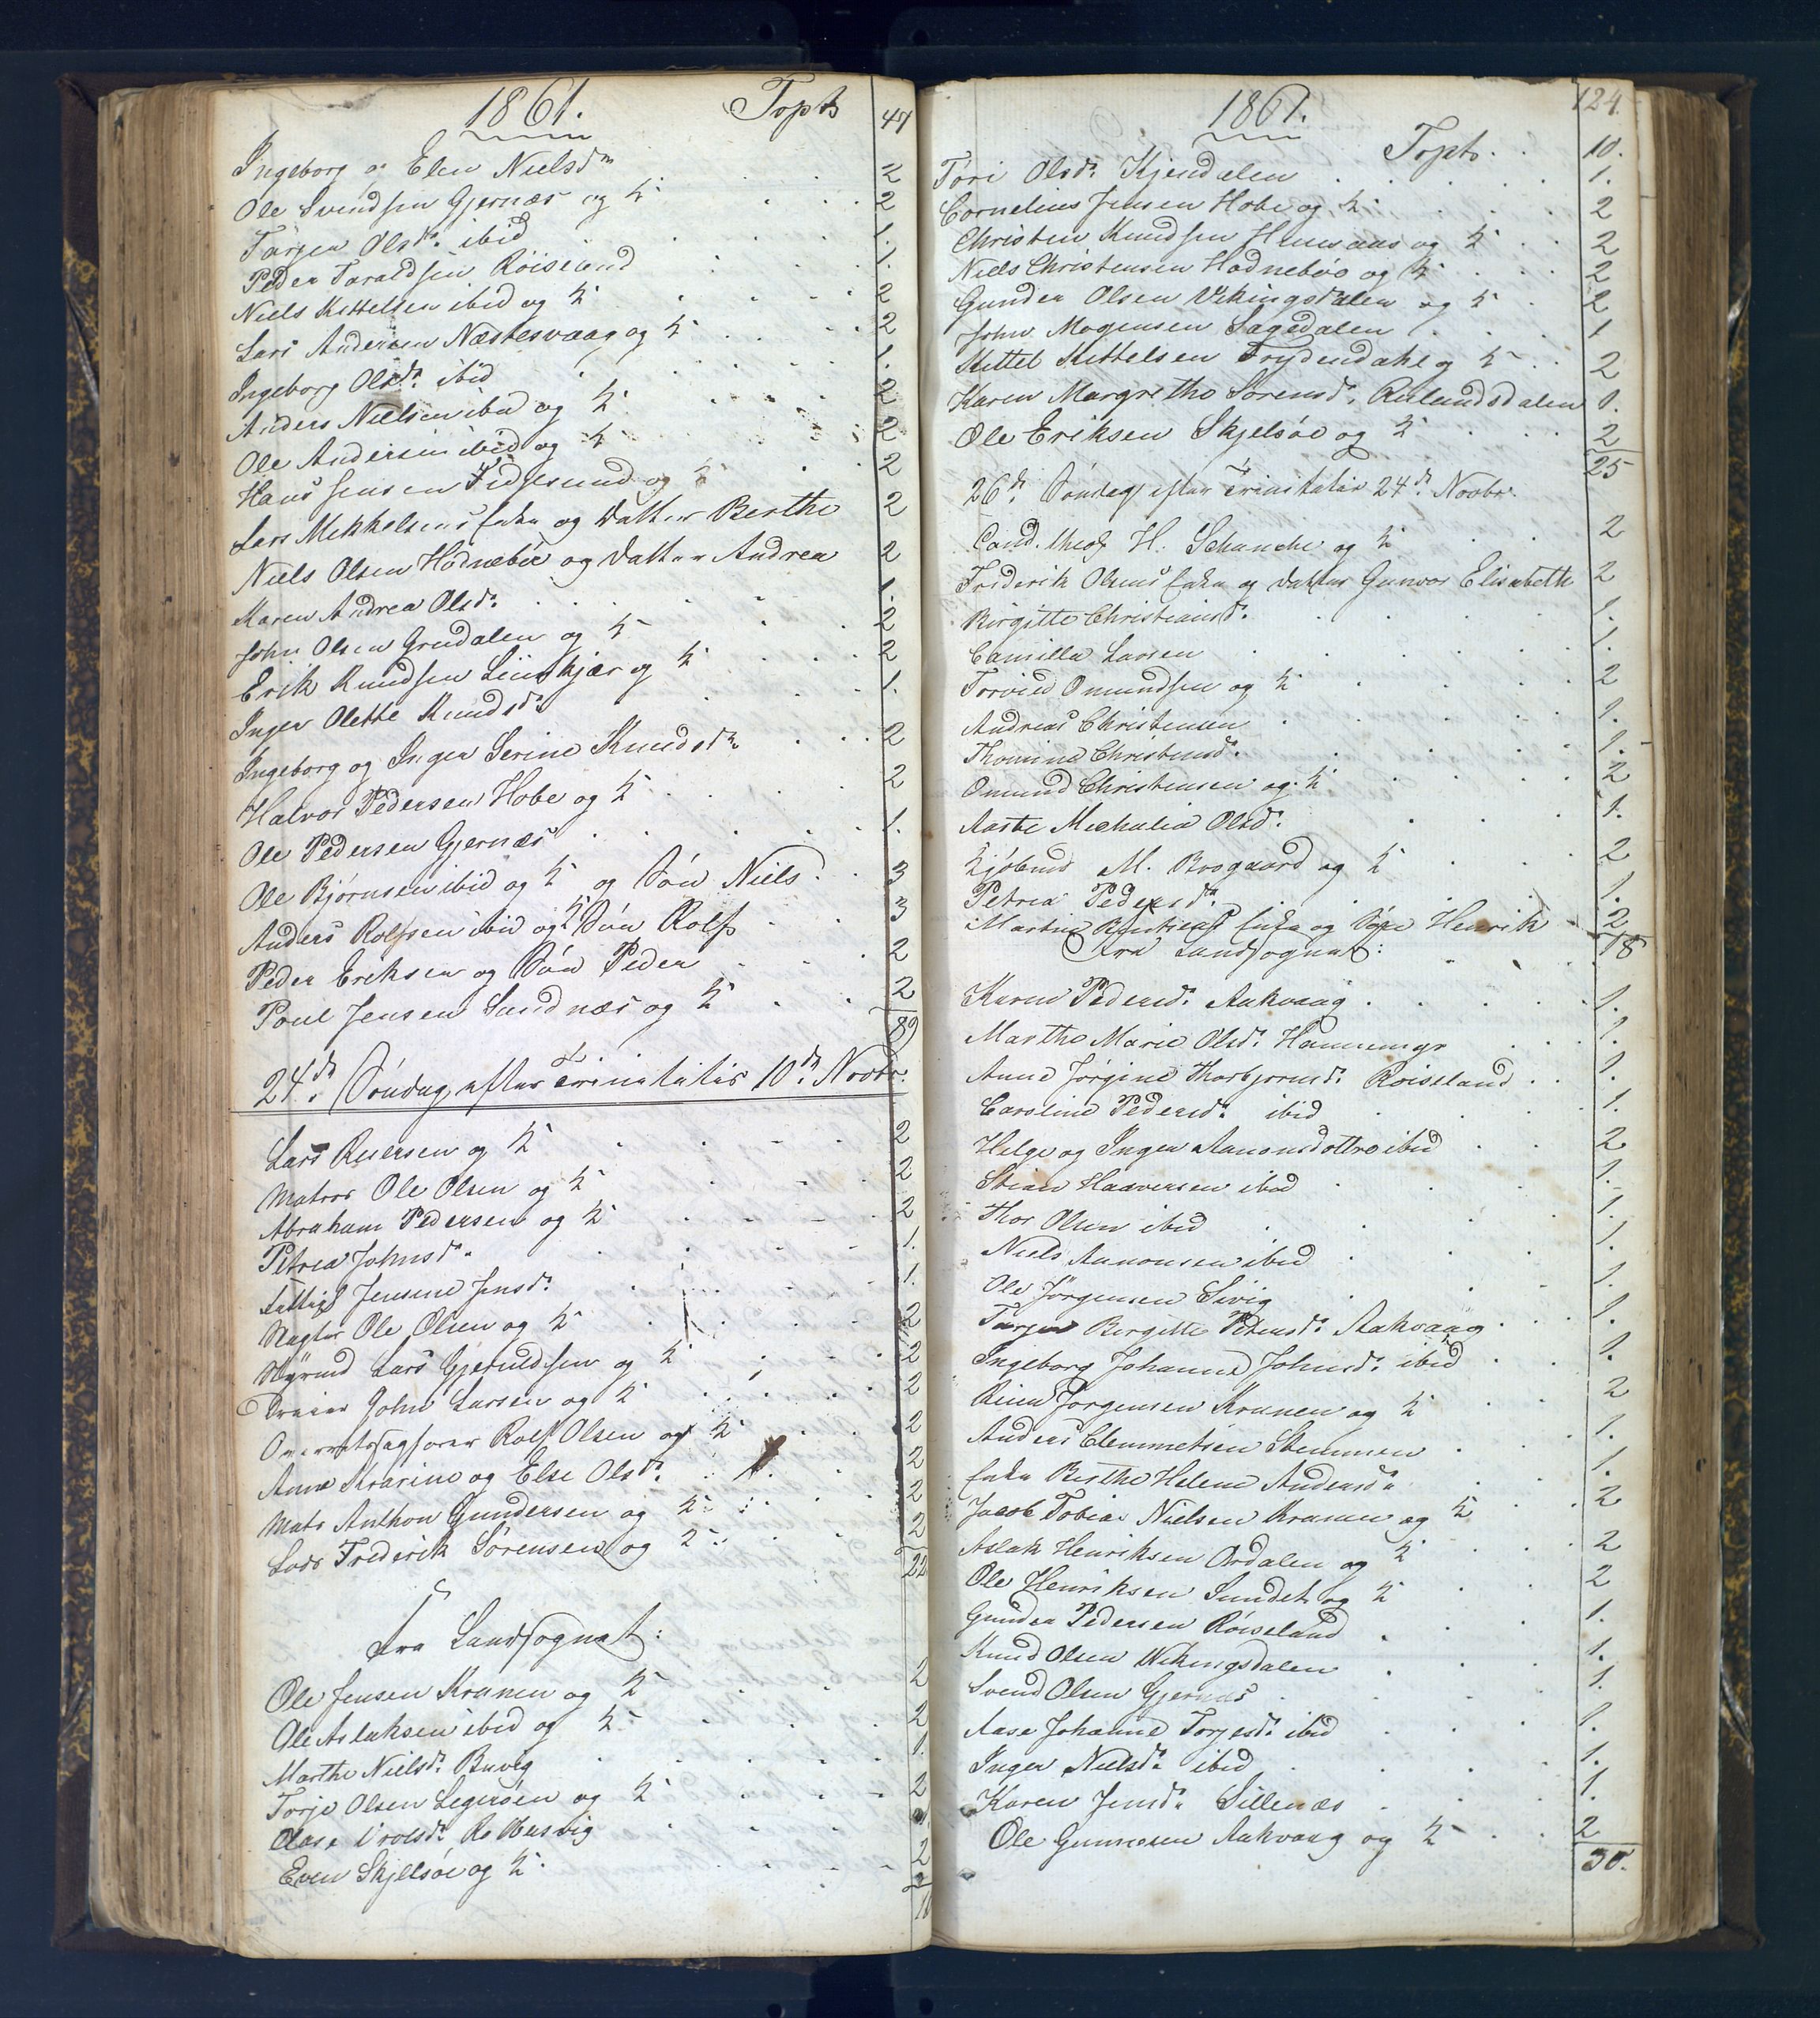 1861.
Topt 47
Ingeborg og Elen Nielsdtr 2
Ole Svendsen Gjernæs og H 2
Torjer Olsdr. ibid 1.
Peder Taraldsen Röiselund 1.
Niels Kettelsen ibid og H 2
Lars Andersen Næstesvaag og H 2
Ingeborg Olsdr. ibid 1.
Anders Nielsen ibid og H 2
Ole Andersen ibid og H 2
Hans Jensen Fidjesund og H 2
Lars Mikkelsens Enke og Datter Berthe 2
Niels Olsen Hödneböe og Datter Andrea 2
Maren Andrea Olsdr. 1.
John Olsen Grudalen og H 2
Erik Knudsen Liinskjær og H 2
Inger Olette Knudsdr. 1.
Ingeborg og Inger Serine Knudsdr. 2
Halvor Pedersen Hobe og H 2
Ole Pedersen Gjernæs 1.
Ole Bjørnsen ibid og H og Sön Niels 3
Anders Rolfsen ibid og H Sön Rolf 3
Peder Eriksen og Sön Peder 2
Poul Jensen Sundnæs og H 2
89
24de Söndag efter Trinitatis 10de Novbr.
Lars Reiersen og H 2
Matros Ole Olsen og H 2
Abraham Pedersen og H 2
Petrea Johnsdr. 1.
Fattigl Jensine Jensdr. 1.
Vægter Ole Olsen og H 2
Styrmd Lars Gjeruldsen og H 2
Dreier John Larsen og H 2
Overretssagförer Rolf Olsen og H 2
Anne Marine og Else Olsdr. 2
Mats Anthon Gundersen og H 2
Lods Frederik Sörensen og H 2
22
Fra Landsognet:
Ole Jensen Kranen og H 2
Ole Aslaksen ibid og H 2
Marthe Nielsdr. Buvig 1.
Torje Olsen Legeröen og H 2
Even Skjelsöe og H 2
1861.
124.
Topt. 10.
Töri Olsdr. Kjendalen 1.
Cornelius Jensen Hobe og H 2
Christen Knudsen Hemsaas og H 2
Niels Christensen Hodneböe og H 2
Gunder Olsen Vikingsdalen og H 2
John Mogensen Sagedalen 1
Kittel Kittelsen Frydendahl og H 2
Karen Margrethe Sörensdr. Röilundsdalen 1.
Ole Eriksen Skjelsöe og H 2
25
26de Söndag efter Trinitatis 24de Novbr.
Cand. theol H. Schanche og H 2
Frederik Olsens Enke og Datter Gunvor Elisabeth 2
Birgitte Christiansdr. 1.
Camilla Larsen 1.
Torvild Omundsen og H 2
Andreas Christensen 1.
Thomine Christensdr. 1.
Omund Christensen og H 2
Aaste Michalia Olsdr. 1.
Kjöbmd M. Brogaard og H 2
Petrea Pedersdr. 1.
Martin Enke og Henrik 2
18
Fra Landsognet:
Karen Pedersdr. Aakvaag 1.
Marthe Marie Olsdr. Hammeren 1.
Anne Jörgine Thorbjornsdr. Roiseland 1.
Caroline Pedersdr. ibid 1.
Helge og Inger Aanonsdöttre ibid 2
Stian Haaversen ibid 1.
Thor Olsen ibid 1.
Niels Aanonsen ibid 1.
Ole Jörgensen Sivig 1.
Torjer Birgitte Petersdr. Aakvaag 1.
Ingeborg Johanne Johnsdr. ibid 1.
Reier Jörgensen Kranen og H 2
Anders Clemmetsen Stemmen 1.
Enke Berthe Helene Andersdr. 1.
Jacob Tobias Nielsen Kranen og H 2
Aslak Henriksen Ordalen og H 2
Ole Henriksen Sundet og H 2
Gunder Pedersen Röiseland 1.
Knud Olsen Wikingsdalen 1.
Svend Olsen Gjernæs 1.
Aase Johanne Torjesdr. ibid 1.
Inger Nielsdr. ibid 1.
Karen Jensdr. Sillenæs 1.
Ole Gunnersen Aakvaag og H 2
30.